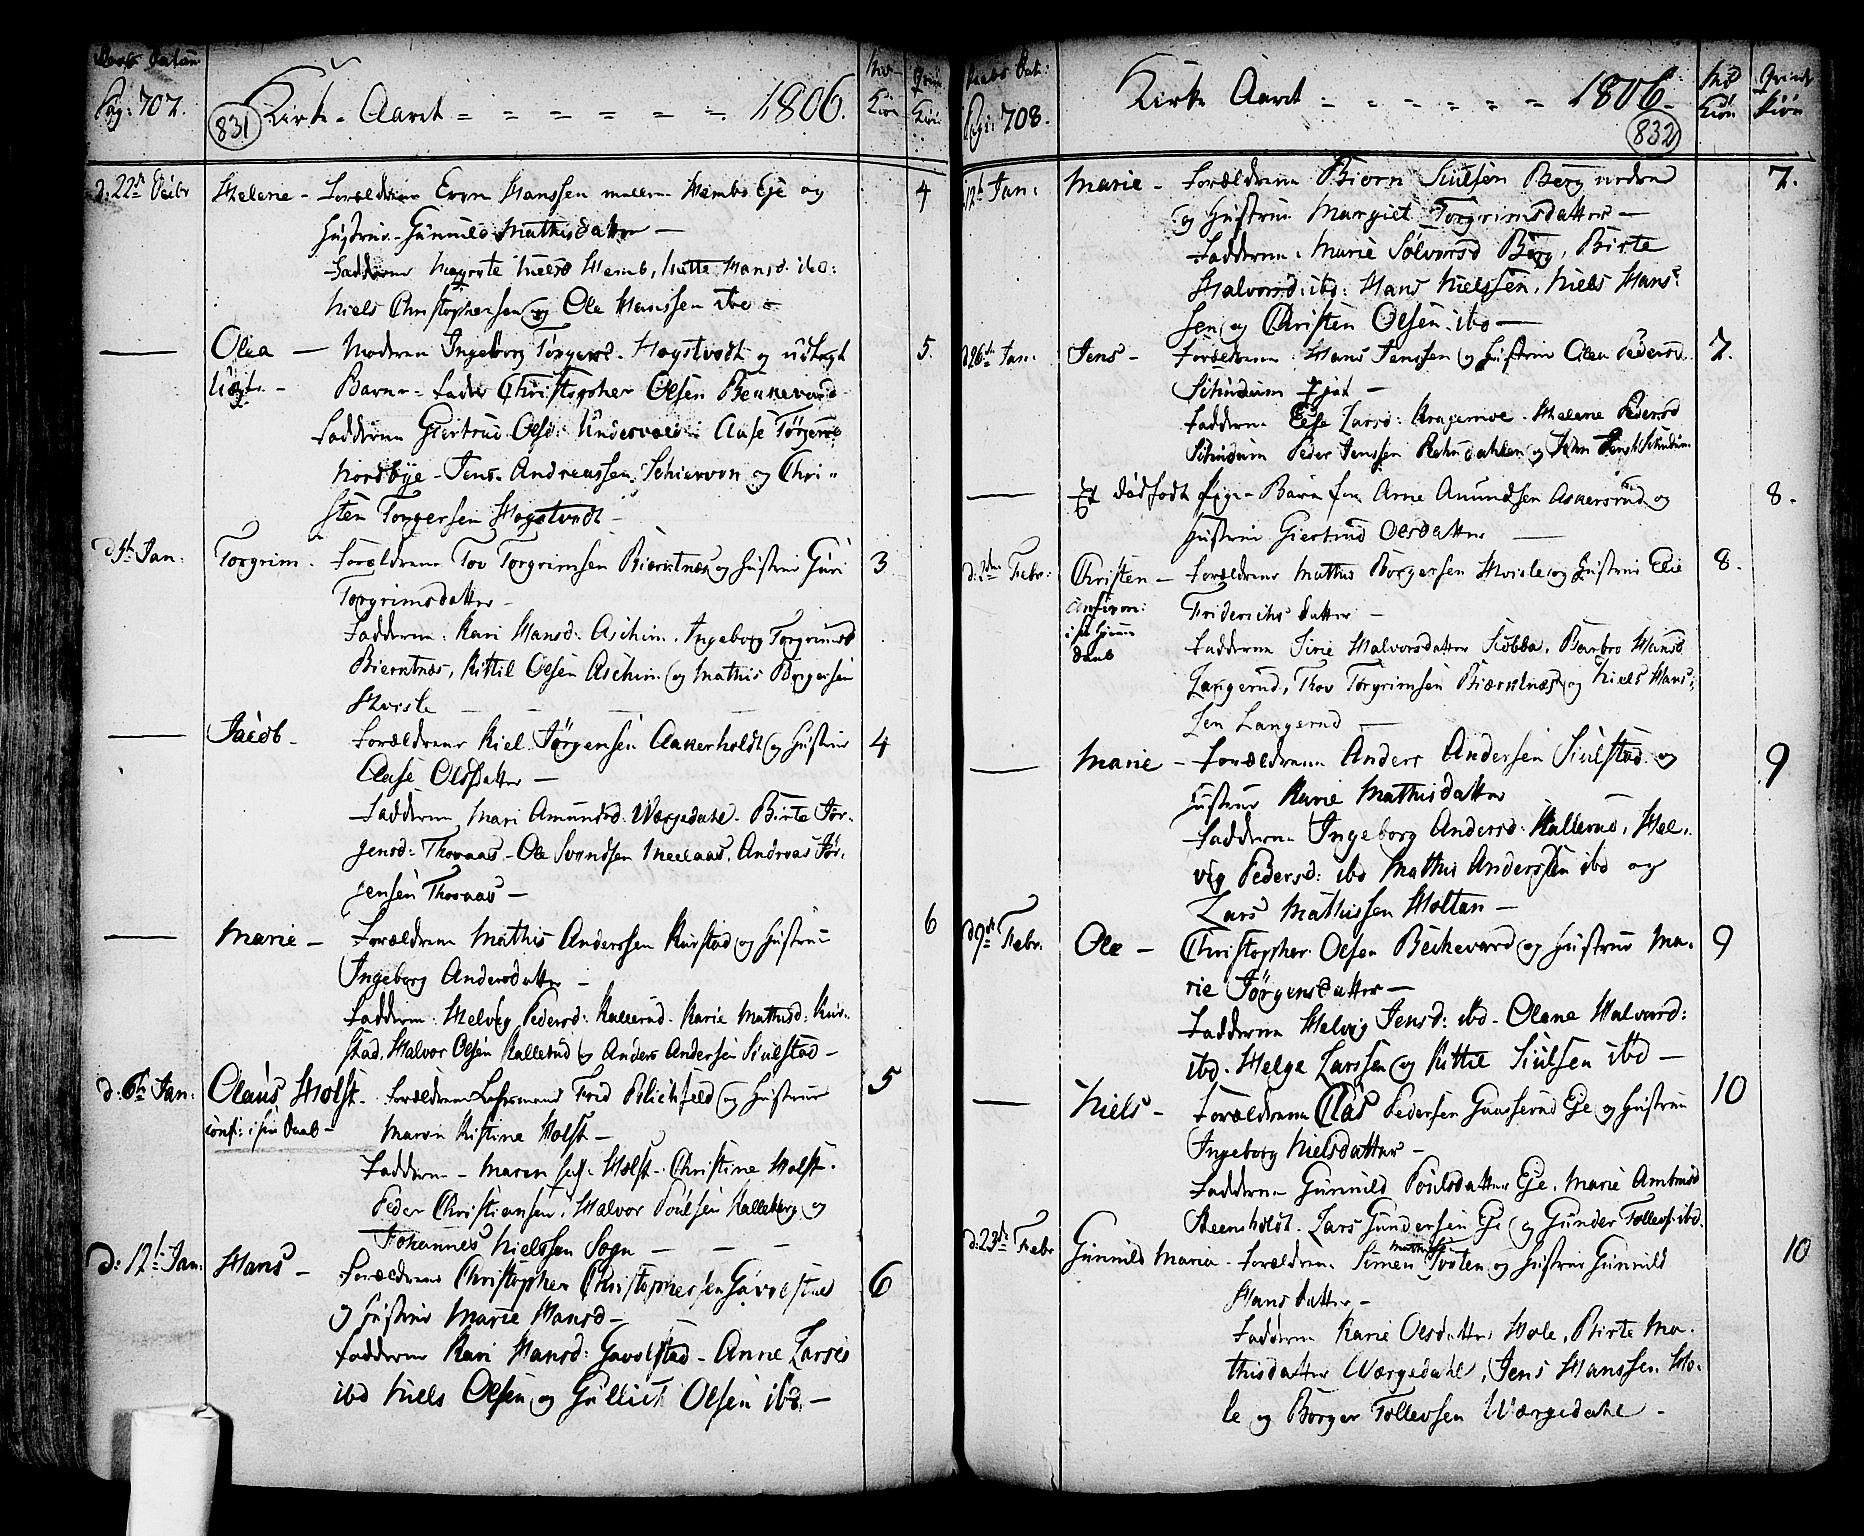 Daabs Datum
Pag: 707.
831
Kirke-Aaret = = = = = = 1806.
Mk Kiøn
Qvin Kiøn
d: 22de Decbr
Helene - Forældrene Even Hanssen Hembs Eje og
Hustrue Gunnild Mathisdatter —
Fadderne Margrete Nielsd Hemb, Hansd. ibd:
Niels Christophersen og Ole Hanssen ibd
4
Olea — Moderen Ingeborg Torgersd. Hogstvedt og udlagt
Uægte - Barne-Fader Christopher Olsen Beckevard
Fadderne Giertrud Olsd: Aase Torgersd
Nordbye - Jens Andreassen og Chri-
sten Torgersen Hogstvedt -
5.
Jan:
Torgrim. Forældrene Tov Torgrimsen Bierntnæs og Hustrue Guri
Torgrimsdatter -
Fadderne: Kari Hansd: Aschim. Ingeborg Torgrimsd
Bierntnæs, Kittil Olsen Aschim og Mathis Børgersen
Hvisle
3
Jacob - Forældrene Kiel Jørgensen Aakerholdt og Hustrue
Aase Olsdatter —
Fadderne Mari Amundsd: Wærgedahl. Birte Jør-
gensd: Thoraas - Ole Svendsen Meelaas, Andreas Jør-
gensen Thoraas —
4
Marie - Forældrene Mathis Anderssen Rustad og Hustrue
Ingeborg Andersdatter -
Fadderne: Helvig Pedersd: Kallerud. Karie Mathisd: Ru-
stad, Halvor Olsen Kallerud og Anders Andersen Siulstad —
6
d: 6te Jan:
Claus Holst - Forældrene Fred Blichfeld og Hustrue
conf: i sin Daab - Maren Kistine Holst —
Fadderne - Maren Holst - Christine Holst.
Peder Christiansen, Halvor Poulsen Kalleberg og
Johannes Nielssen Sogn — — —
5
d: 12te Jan:
Hans - Forældrene Christopher Christophersen Gavelstad
og Hustrue Marie Hansd -
Fadderne Kari Hansd: Gavelstad - Anne Larsd
ibd Niels Olsen og Gulliek Olsen ibd. —
6
Daabs Dat:
Pag: 708.
Kirke Aaret - - - - - - 1806
832
Mk Kiøn
Qvinde Kiøn
12te Jan:
Marie - Forældrene Biørn Siulsen Berg nedre
og Hustrue Margiet Torgrimsdatter —
Fadderne: Marie Solvorsd Berg, Birte
Halvorsd: ibd: Hans Nielssen, Niels Hans-
sen og Christen Olsen ibd —
7.
d 26de Jan:
Jens - Forældrene: Hans Jenssen og Hustrue Olea Pedersd.
—
Fadderne Else Larsd: Kragemoe. Helene Pedersd
Peder Jenssen og
7.
Et dødfødt Pige-Barn for Arne Amundsen Askersrud og
Hustrue Giertrud Olsdatter —
8.
d: 2den Febr:
Christen - Forældrene Mathis Børgersen Hvisle og Hustrue Elie
confirm: Friderichsdatter -
i sin hjemme Fadderne Sirie Halvorsdatter Kobba. Barbro Hansd
daab Langerud, Thov Torgrimsen Bierntnæs og Niels Hans-
sen Langerud —
8.
Marie - Forældrene Anders Andersen Siulstad og
Hustrue Karie Mathisdatter
Fadderne Ingeborg Andersd: Kallerud, Hel-
vig Pedersd: ibd Mathis Anderssen ibd og
Lars Mathissen Holtan —
9
d 9de Febr.
Ole - Christopher Olsen Beckevard og Hustrue Ma-
rie Jørgensdatter —
Fadderne Helvig Jensd: ibd - Olene Halvord:
ibd. Helge Larssen og Kittil Siulsen ibd —
9
Niels - Forældrene Claes Pedersen Gaaserud Eje og Hustrue
Ingeborg Nielsdatter -
Fadderne Gunnild Poulsdatter Eje, Marie Ambrosd
Steensholdt. Lars Gundersen Eje og Gunder Tollevs: ibd.
10
d: 23de Febr
Gunnild Maria - Forældrene Simen Mathis Tvøten og Hustrue Gunnild
Hansdatter -
Fadderne Karie Olsdatter Hole, Birte Ma-
thisdatter Wærgedahl, Jens Hanssen Ho-
le og Børger Tollevsen Wærgedahl -
10